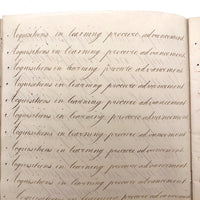 Acquisitions in learning procure advancement
Acquisitions in learning procure advancement
Acquisitions in learning procure advancement
Acquisitions in learning procure advancement
Acquisitions in learning procure advancement
Acquisitions in learning procure advancement
Acquisitions in learning procure advancement
Acquisitions in learning procure advancement
Acquisitions in learning procure advancement
Acquisitions in learning procure advancement
Acquisitions in learning procure advancement